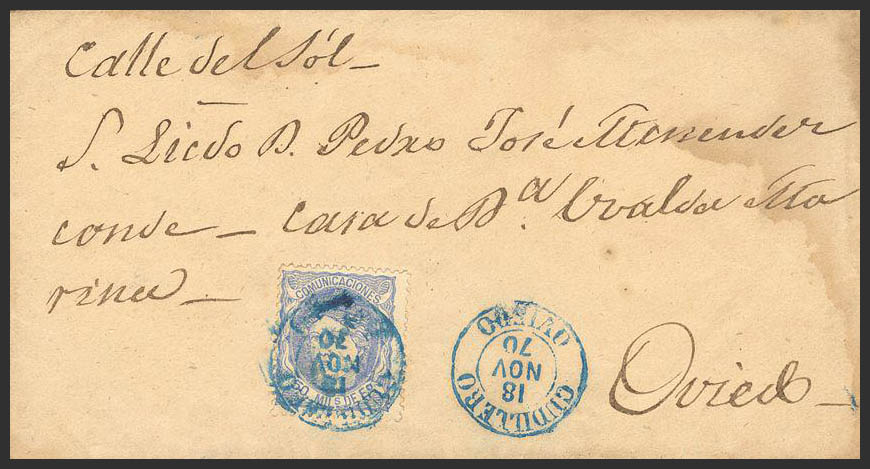 Calle del Sól_
S. Licdo D. Pedro José Menender
conde _ casa de Dª Uvalda Ma
rina _
COMUNICACIONES
50. MILS DE E
18
NOV
70
CUDILLERO
OVIEDO
18
NOV
70
Oviedo _